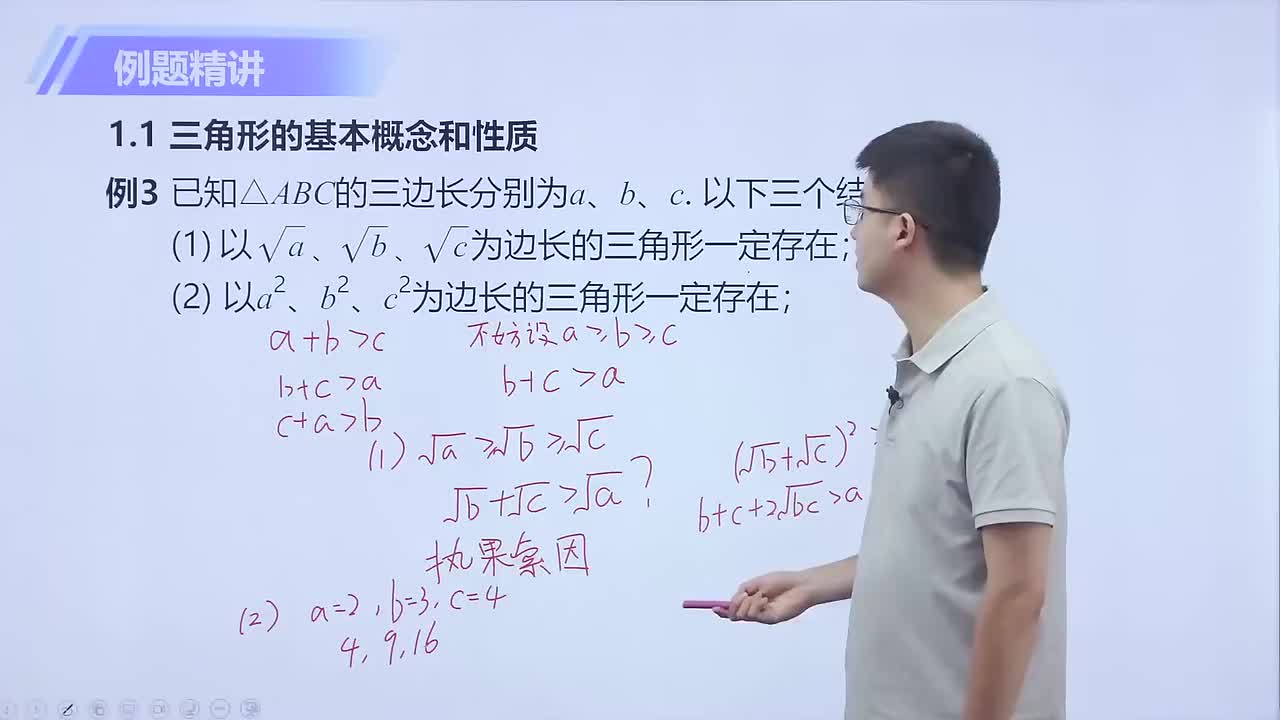 例题精讲
1.1 三角形的基本概念和性质
例3 已知△ABC的三边长分别为a、b、c. 以下三个结
(1) 以√a、√b、√c为边长的三角形一定存在;
(2) 以a²、b²、c²为边长的三角形一定存在;
a+b>c 不妨设a≥b≥c
b+c>a b+c>a
c+a>b
(1) √a≥√b≥√c
(√b+√c)²>
√b+√c>√a?
b+c+2√bc>a
执果索因
(2) a=2, b=3, c=4
4, 9, 16